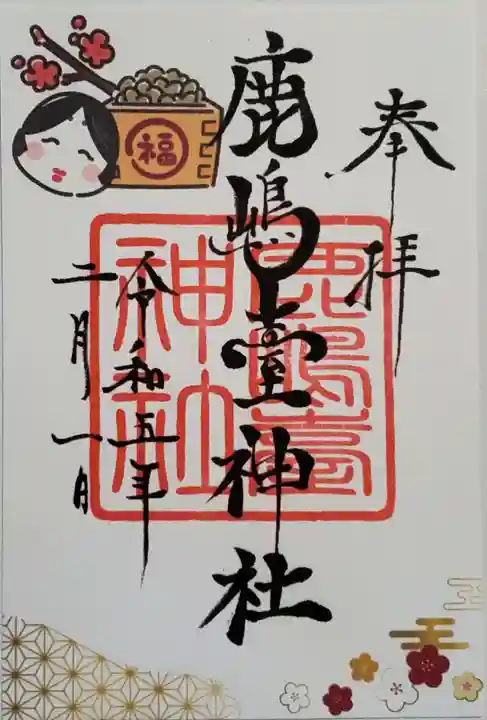 奉拝
鹿嶋臺神社
鹿嶋臺神社
令和五年
二月一日
福